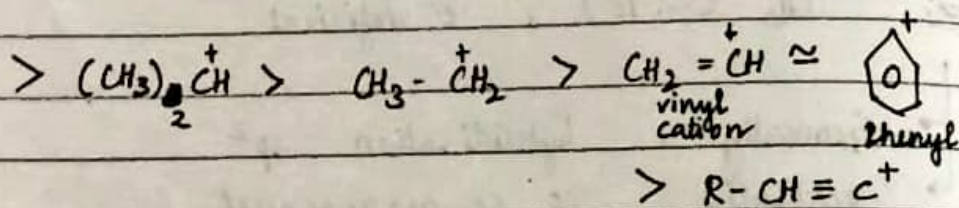 > (CH₃)₂ C⁺H > CH₃- C⁺H₂ > CH₂ = C⁺H ≃ +
vinyl
cation
Phenyl
> R- CH ≡ C⁺